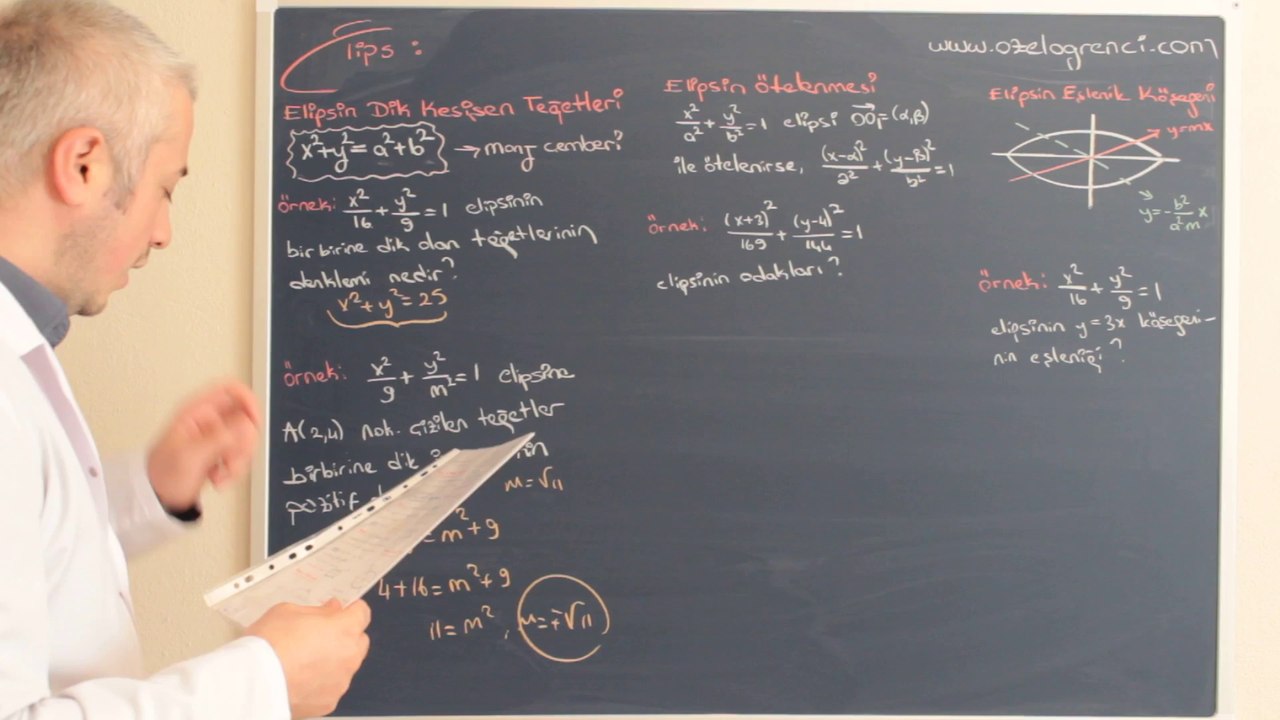 Tips:
www.ozelogrenci.com
Elipsin Dik Kesişen Teğetleri
x²+y²=a²+b² → monj çemberi
örnek: x²/16 + y²/9 = 1 elipsinin
birbirine dik olan teğetlerinin
denklemi nedir?
x²+y²=25
örnek: x²/9 + y²/m² = 1 elipsine
A(2,4) nok. çizilen teğetler
birbirine dik
pozitif
m=√11
=m²+9
4+16=m²+9
11=m², m=∓√11
Elipsin Ötelenmesi
x²/a² + y²/b² = 1 elipsi OO₁=(α,β)
ile ötelenirse, (x-α)²/a² + (y-β)²/b² = 1
örnek: (x+3)²/169 + (y-4)²/144 = 1
elipsinin odakları?
Elipsin Eşlenik Köşegeni
y=mx
y=-b²/a²m x
örnek: x²/16 + y²/9 = 1
elipsinin y=3x köşegeni-
nin eşleniği?